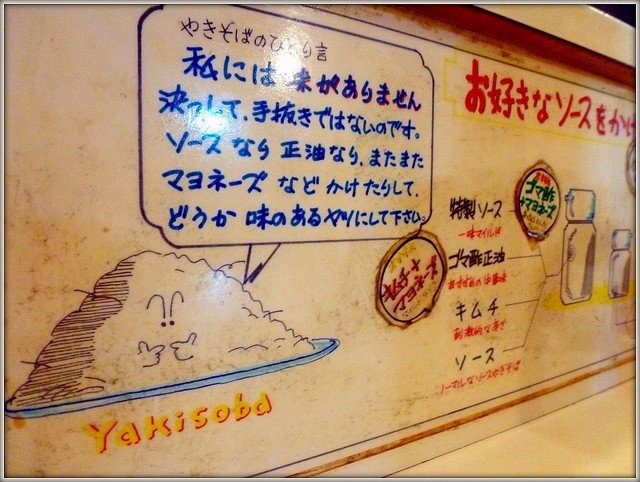 やきそばのひとり言
私には味がありません
決っして、手抜きではないのです。
ソースなら正油なり、またまた
マヨネーズなどかけたりして、
どうか味のあるヤツにして下さい。
Yakisoba
キムチ+
マヨネーズ
お好きなソースをかけ
ゴマ酢
+マヨネーズ
特製ソース
一味マイルド
ゴマ酢正油
キムチ
刺激的な辛さ
ソース
ノーマルなソースやきそば